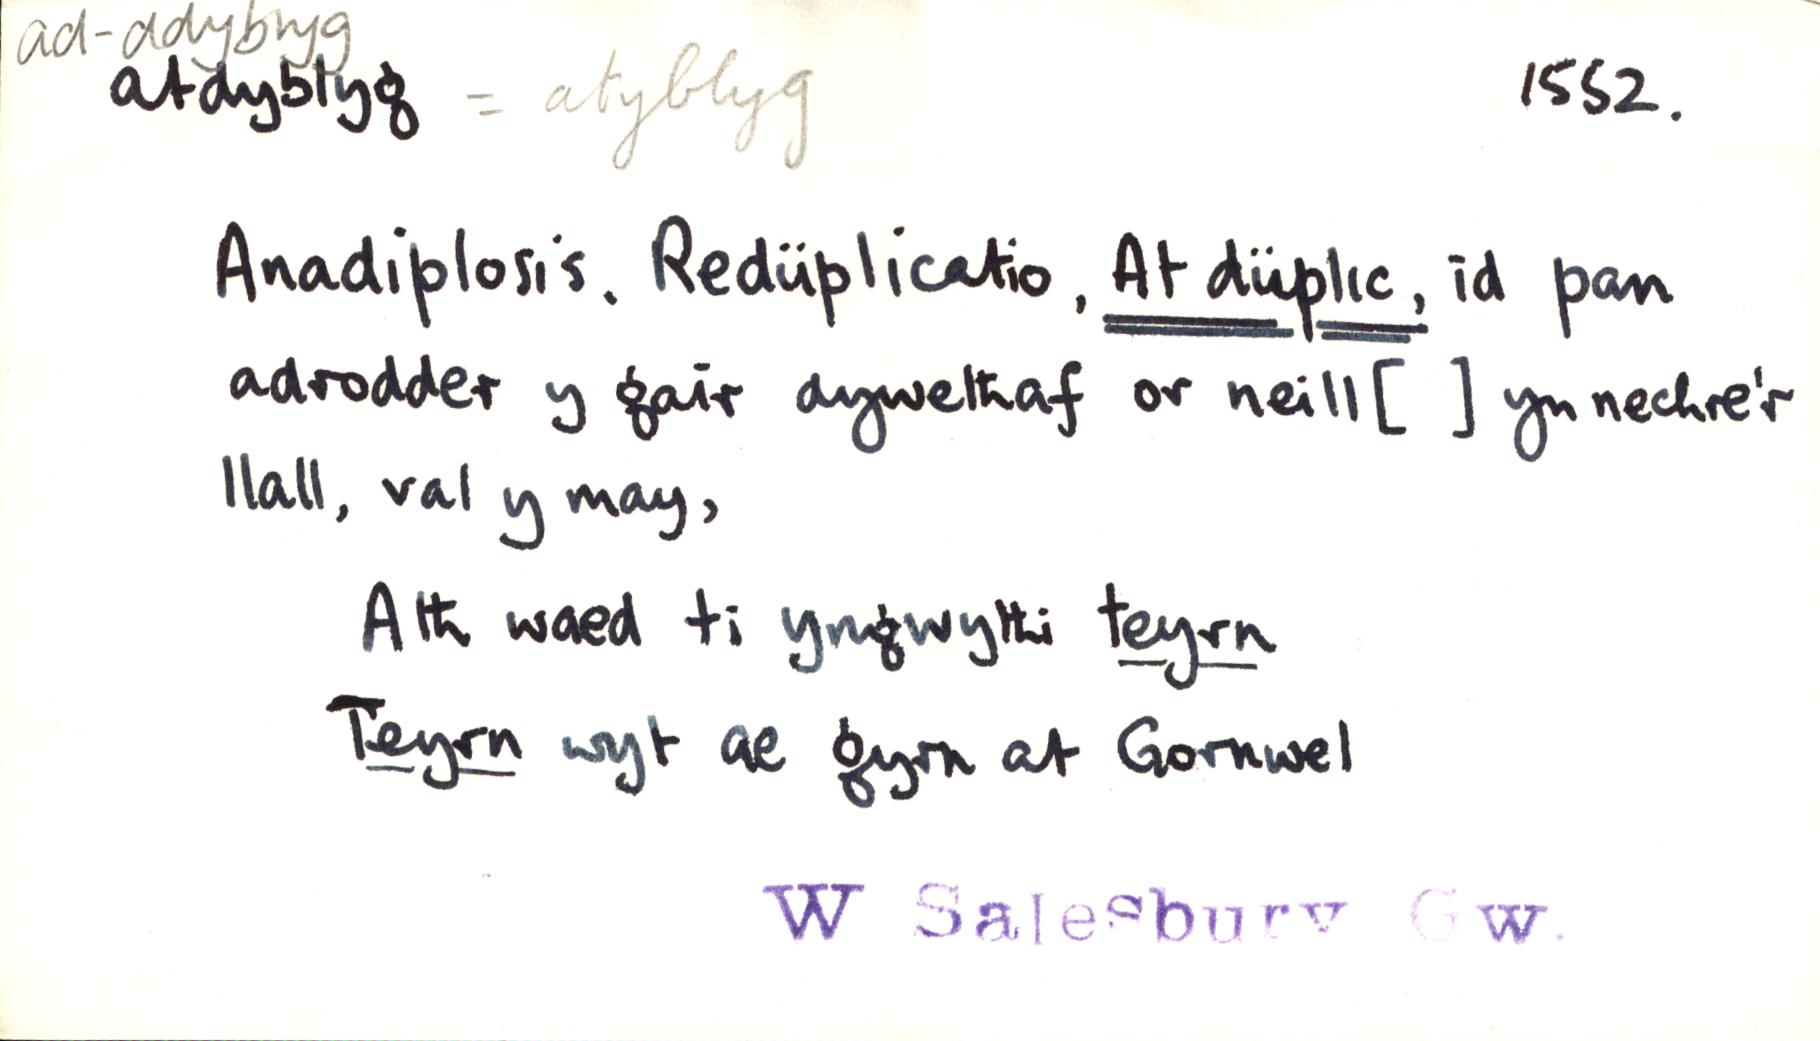 ad-ddyblyg
atdyblyg = atyblyg 1552.
Anadiplosis. Redüplicatio, At düplic, id pan
adrodder y gair dywethaf or neill [ ] yn nechre'r
llall, val y may,
Ath waed ti yngwythi teyrn
Teyrn wyt ae gyrn at Gornwel
W Salesbury Gw.